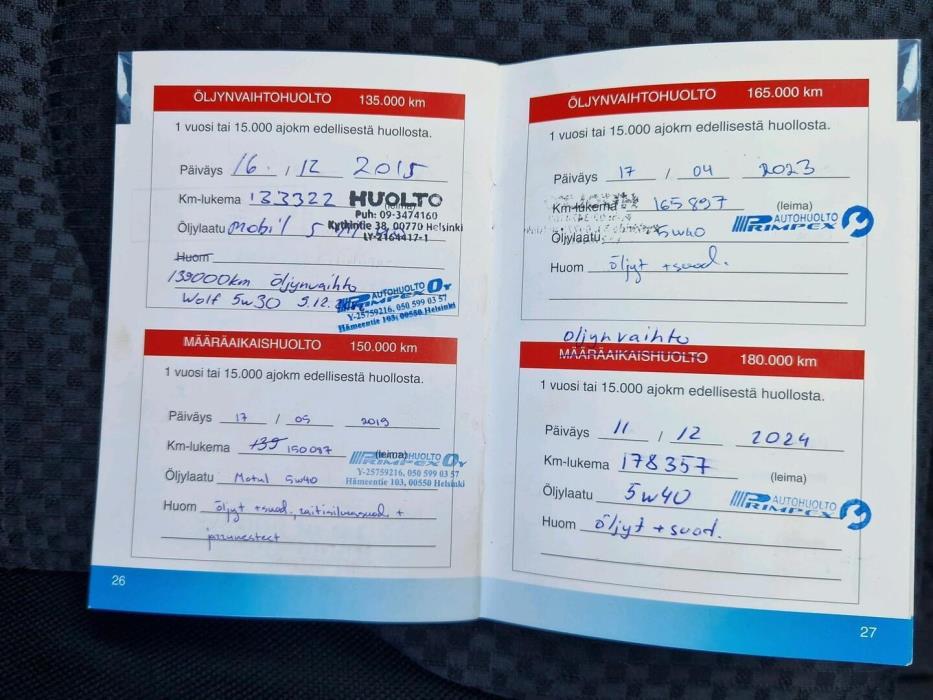 ÖLJYNVAIHTOHUOLTO 135.000 km
1 vuosi tai 15.000 ajokm edellisestä huollosta.
Päiväys 16. / 12 2015
Km-lukema 133322 (leima)
HUOLTO
Puh: 09-3474160
Kythintie 38, 00770 Helsinki
LY-2164417-1
Öljylaatu mobil 5
Huom
139000km öljynvaihto
Wolf 5w30 5.12.
AUTOHUOLTO OY
PRIMPEX
Y-25759216, 050 599 03 57
Hämeentie 103, 00550 Helsinki
MÄÄRÄAIKAISHUOLTO 150.000 km
1 vuosi tai 15.000 ajokm edellisestä huollosta.
Päiväys 17 / 05 2019
Km-lukema 139 150087 (leima)
AUTOHUOLTO OY
PRIMPEX
Y-25759216, 050 599 03 57
Hämeentie 103, 00550 Helsinki
Öljylaatu Motul 5w40
Huom öljyt + suod, raitisilmasuod +
26
ÖLJYNVAIHTOHUOLTO 165.000 km
1 vuosi tai 15.000 ajokm edellisestä huollosta.
Päiväys 17 / 04 2023
Km-lukema 165897 (leima)
AUTOHUOLTO
PRIMPEX
Öljylaatu 5w40
Huom öljyt + suod.
öljynvaihto
MÄÄRÄAIKAISHUOLTO 180.000 km
1 vuosi tai 15.000 ajokm edellisestä huollosta.
Päiväys 11 / 12 2024
Km-lukema 178357 (leima)
Öljylaatu 5w40
AUTOHUOLTO
PRIMPEX
Huom öljyt + suod.
27